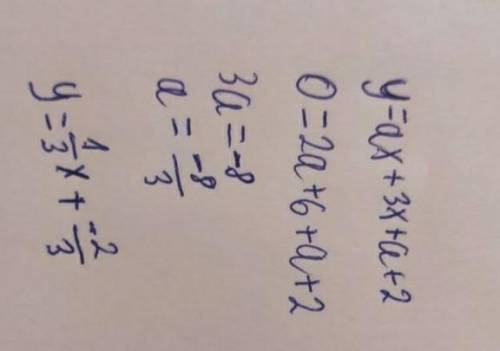 y=ax+3x+a+2
0=2a+6+a+2
3a=-8
a=-8/3
y=1/3x+-2/3